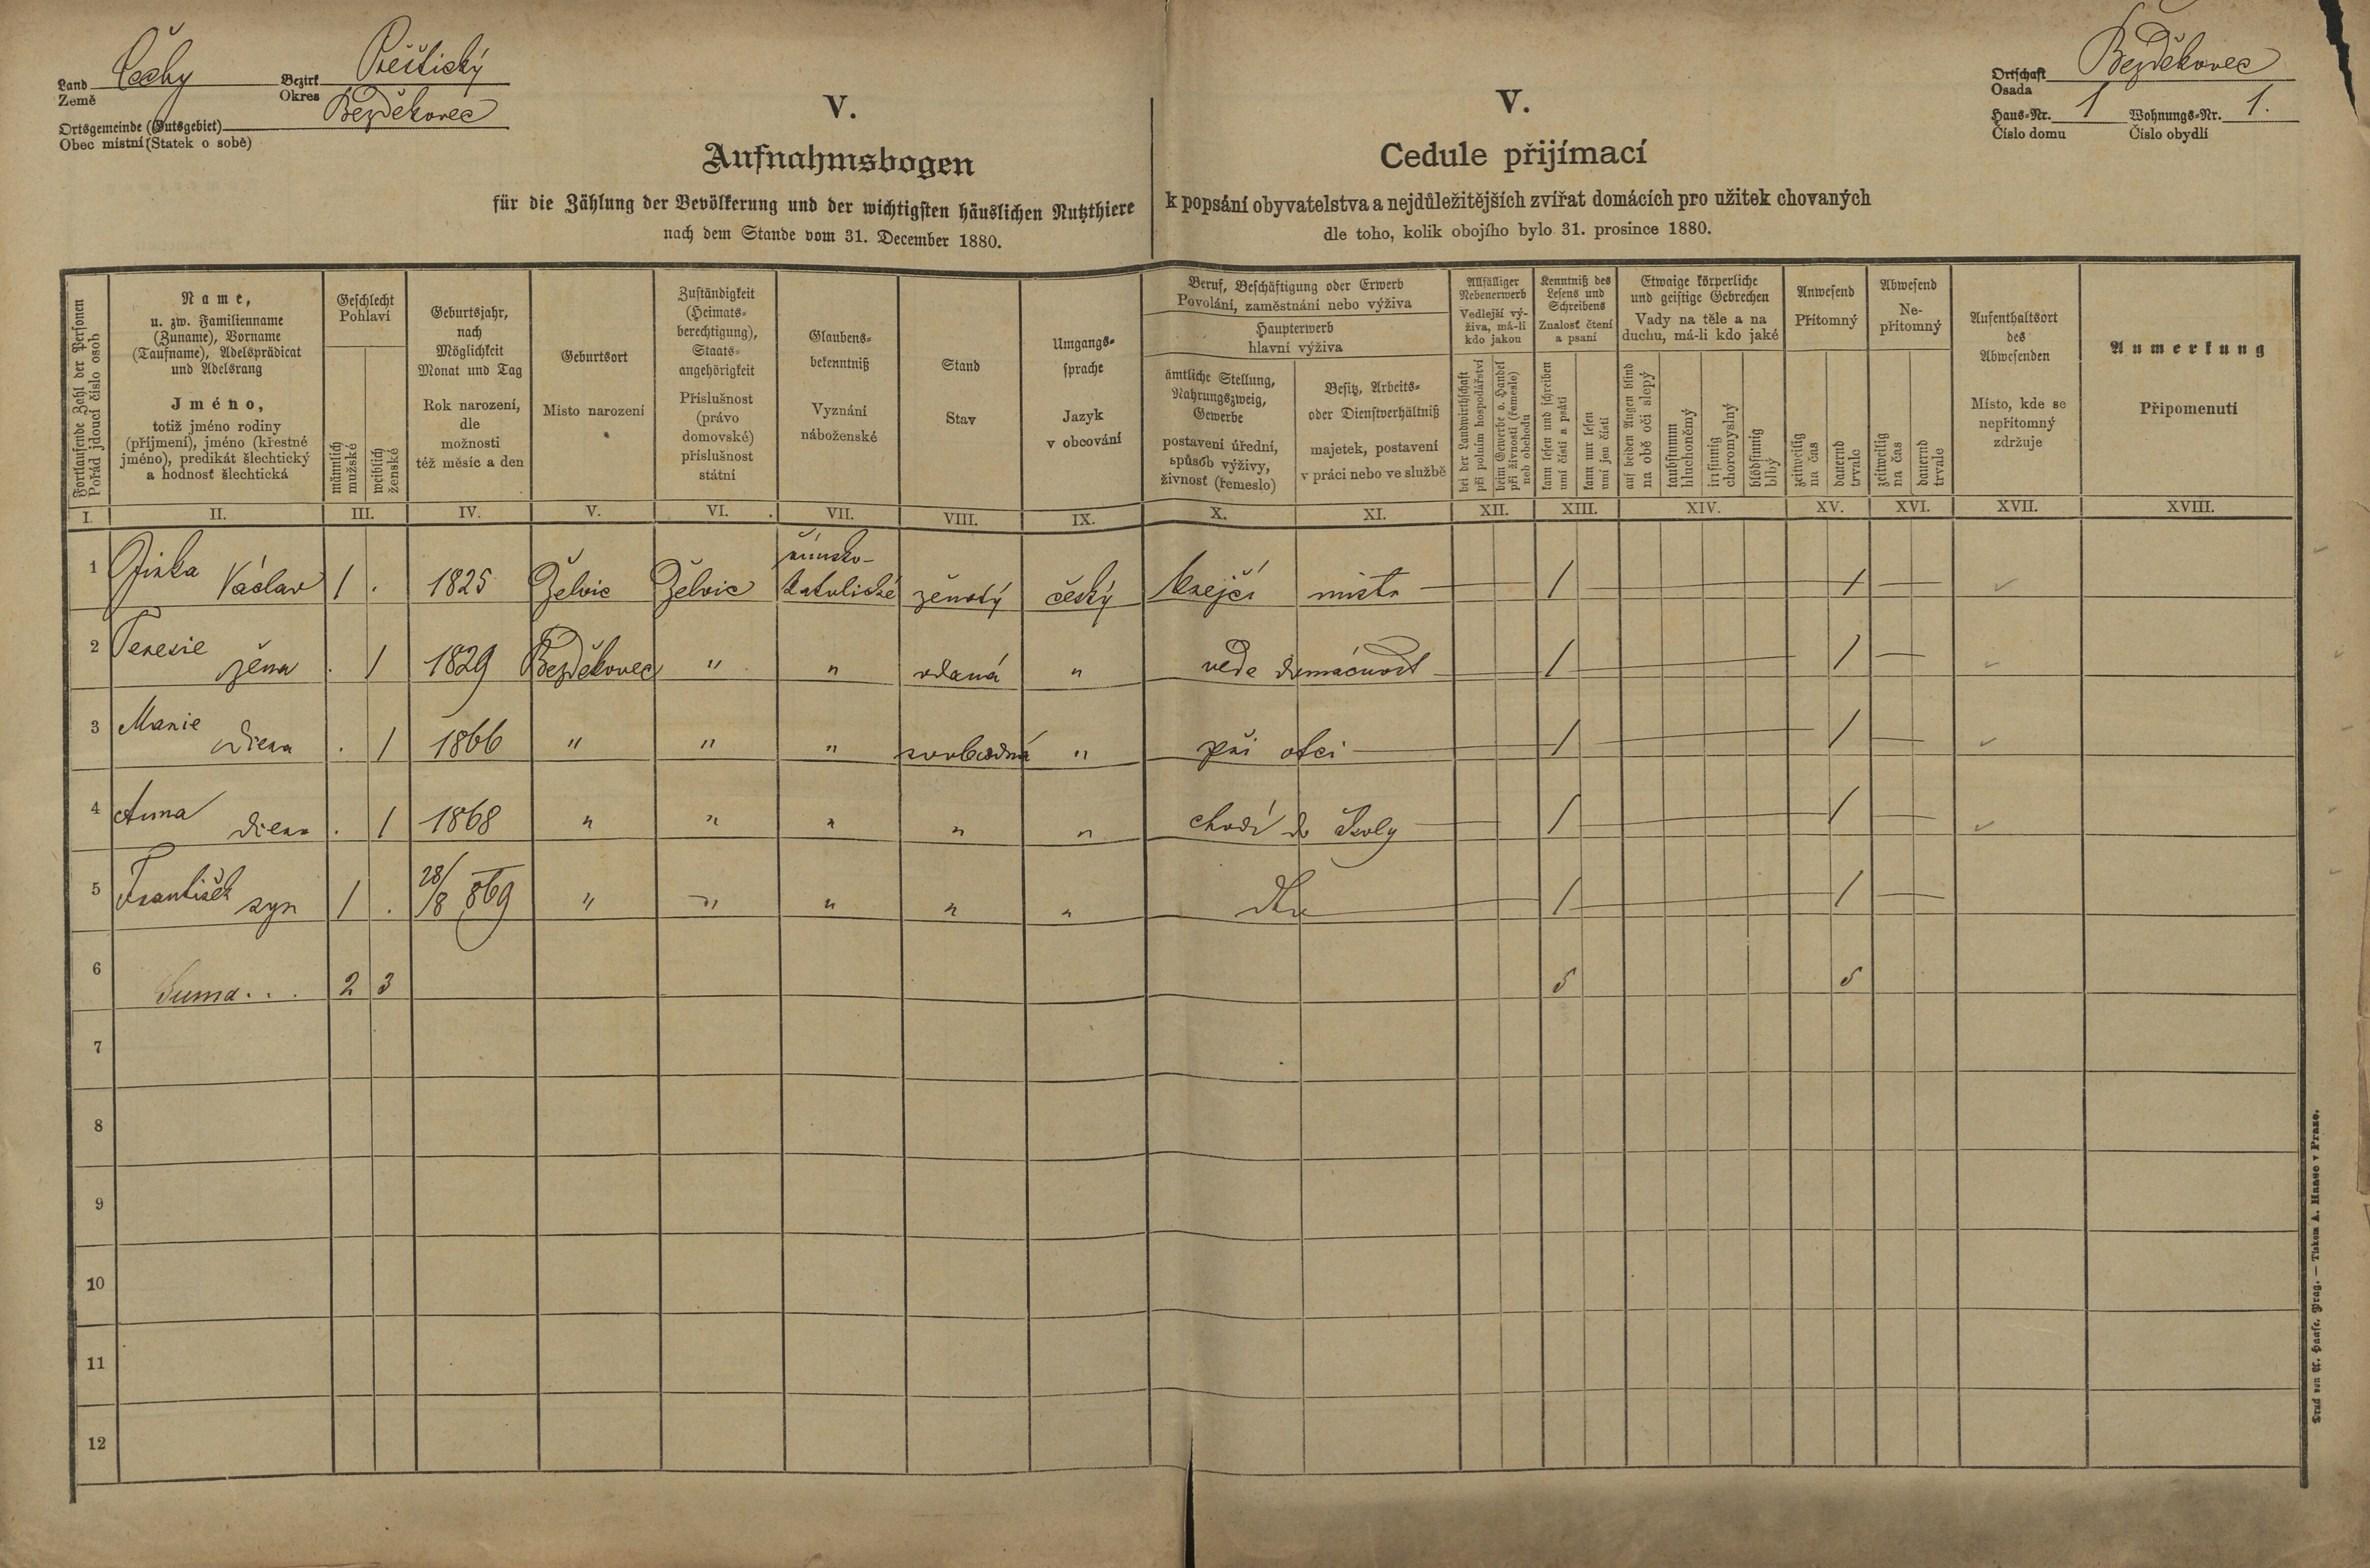 Land Čechy Bezirk Přeštický
Země Okres
Ortsgemeinde (Gutsgebiet) Bezděkovec
Obec místní (Statek o sobě)
V.
Aufnahmsbogen
für die Zählung der Bevölkerung und der wichtigsten häuslichen Nutzthiere
nach dem Stande vom 31. December 1880.
V.
Cedule přijímací
k popsání obyvatelstva a nejdůležitějších zvířat domácích pro užitek chovaných
dle toho, kolik obojího bylo 31. prosince 1880.
Ortschaft Bezděkovec
Osada
Haus-Nr. 1 Wohnungs-Nr. 1.
Číslo domu Číslo obydlí
Fortlaufende Zahl der Personen
Pořád jdoucí číslo osob
Name,
u. zw. Familienname
(Zuname), Vorname
(Taufname), Adelsprädicat
und Adelsrang
Jméno,
totiž jméno rodiny
(příjmení), jméno (křestné
jméno), predikát šlechtický
a hodnosť šlechtická
Geschlecht
Pohlaví
männlich
mužské
weiblich
ženské
Geburtsjahr,
nach
Möglichkeit
Monat und Tag
Rok narození,
dle
možnosti
též měsíc a den
Geburtsort
Místo narození
Zuständigkeit
(Heimats-
berechtigung),
Staats-
angehörigkeit
Příslušnost
(právo
domovské)
příslušnost
státní
Glaubens-
bekenntniß
Vyznání
náboženské
Stand
Stav
Umgangs-
sprache
Jazyk
v obcování
Beruf, Beschäftigung oder Erwerb
Povolání, zaměstnání nebo výživa
Haupterwerb
hlavní výživa
ämtliche Stellung,
Nahrungszweig,
Gewerbe
postavení úřední,
spůsob výživy,
živnosť (řemeslo)
Besitz, Arbeits-
oder Dienstverhältniß
majetek, postavení
v práci nebo ve službě
Allfälliger
Nebenerwerb
Vedlejší vý-
živa, má-li
kdo jakou
bei der Landwirthschaft
při polním hospodářství
beim Gewerbe o. Handel
při živnosti (řemesle)
neb obchodu
Kenntniß des
Lesens und
Schreibens
Znalosť čtení
a psaní
kann lesen und schreiben
umí čísti a psáti
kann nur lesen
umí jen čísti
Etwaige körperliche
und geistige Gebrechen
Vady na těle a na
duchu, má-li kdo jaké
auf beiden Augen blind
na obě oči slepý
taubstumm
hluchoněmý
irrsinnig
choromyslný
blödsinnig
blbý
Anwesend
Přítomný
zeitweilig
na čas
dauernd
trvale
Abwesend
Ne-
přítomný
zeitweilig
na čas
dauernd
trvale
Aufenthaltsort
des
Abwesenden
Místo, kde se
nepřítomný
zdržuje
Anmerkung
Připomenutí
I. II. III. IV. V. VI. VII. VIII. IX. X. XI. XII. XIII. XIV. XV. XVI. XVII. XVIII.
1 Jirka Václav 1 . 1825 Želvic Želvic římsko-
katolické ženatý český krejčí mistr 1 1
2 Teresie žena . 1 1829 Bezděkovec " " vdaná " vede domácnost 1 1
3 Marie dcera . 1 1866 " " " svobodná " při otci 1 1
4 Anna dcera . 1 1868 " " " " " chodí do školy 1 1
5 František syn 1 . 28/8 869 " " " " " dto 1 1
6 Suma... 2 3 5 5
7
8
9
10
11
12
Druck von A. Haase, Prag. — Tiskem A. Haase v Praze.